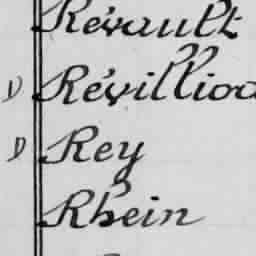 Révault
D Révilliod
D Rey
Rhein